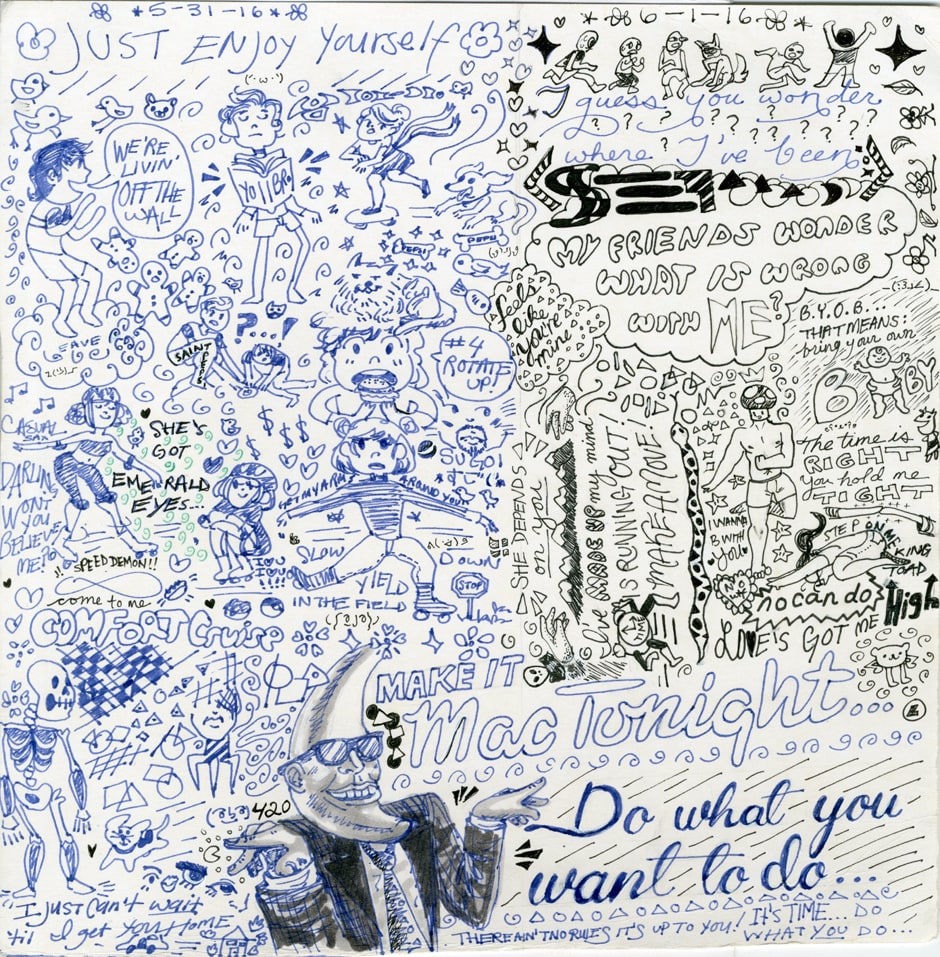 *5-31-16*
JUST ENJOY Yourself
WE'RE
LIVIN'
OFF THE
WALL
LEAVE
SAINT
PEPSI
PEPSI
#4
ROTATE
UP!
CASUAL
SAX
DARLIN
WON'T
YOU
BELIEVE
ME!?
SHE'S
GOT
EMERALD
EYES...
$
$$$
GET MY ARMS
AROUND YOU!!
SLOW
DOWN
YIELD
IN THE FIELD
STOP
I LOVE U
SPEED DEMON!!
come to me
COMFORT Cruise
420
I JUST CAN't wait
'til I get you Home
*6-1-16*
I guess you wonder
? ? ? ? ? ? ? ? ? ?
where I've been
MY FRIENDS WONDER
WHAT IS WRONG
WITH ME?
feels
like
you're
mine
B.Y.O.B...
THAT MEANS:
bring your own
BABY
SHE DEPENDS
on you
I've MADE UP my mind
TIME IS RUNNING OUT!
MAKE A MOVE!
The time is
RIGHT
You hold me
TIGHT
I WANNA
B WITH
YOU
STEP ON ME
KING
TOAD
no can do
LOVE'S GOT ME High
MAKE IT
Mac Tonight...
Do what you
want to do...
THERE AIN'T NO RULES IT'S UP TO YOU! IT'S TIME... DO
WHAT YOU DO...